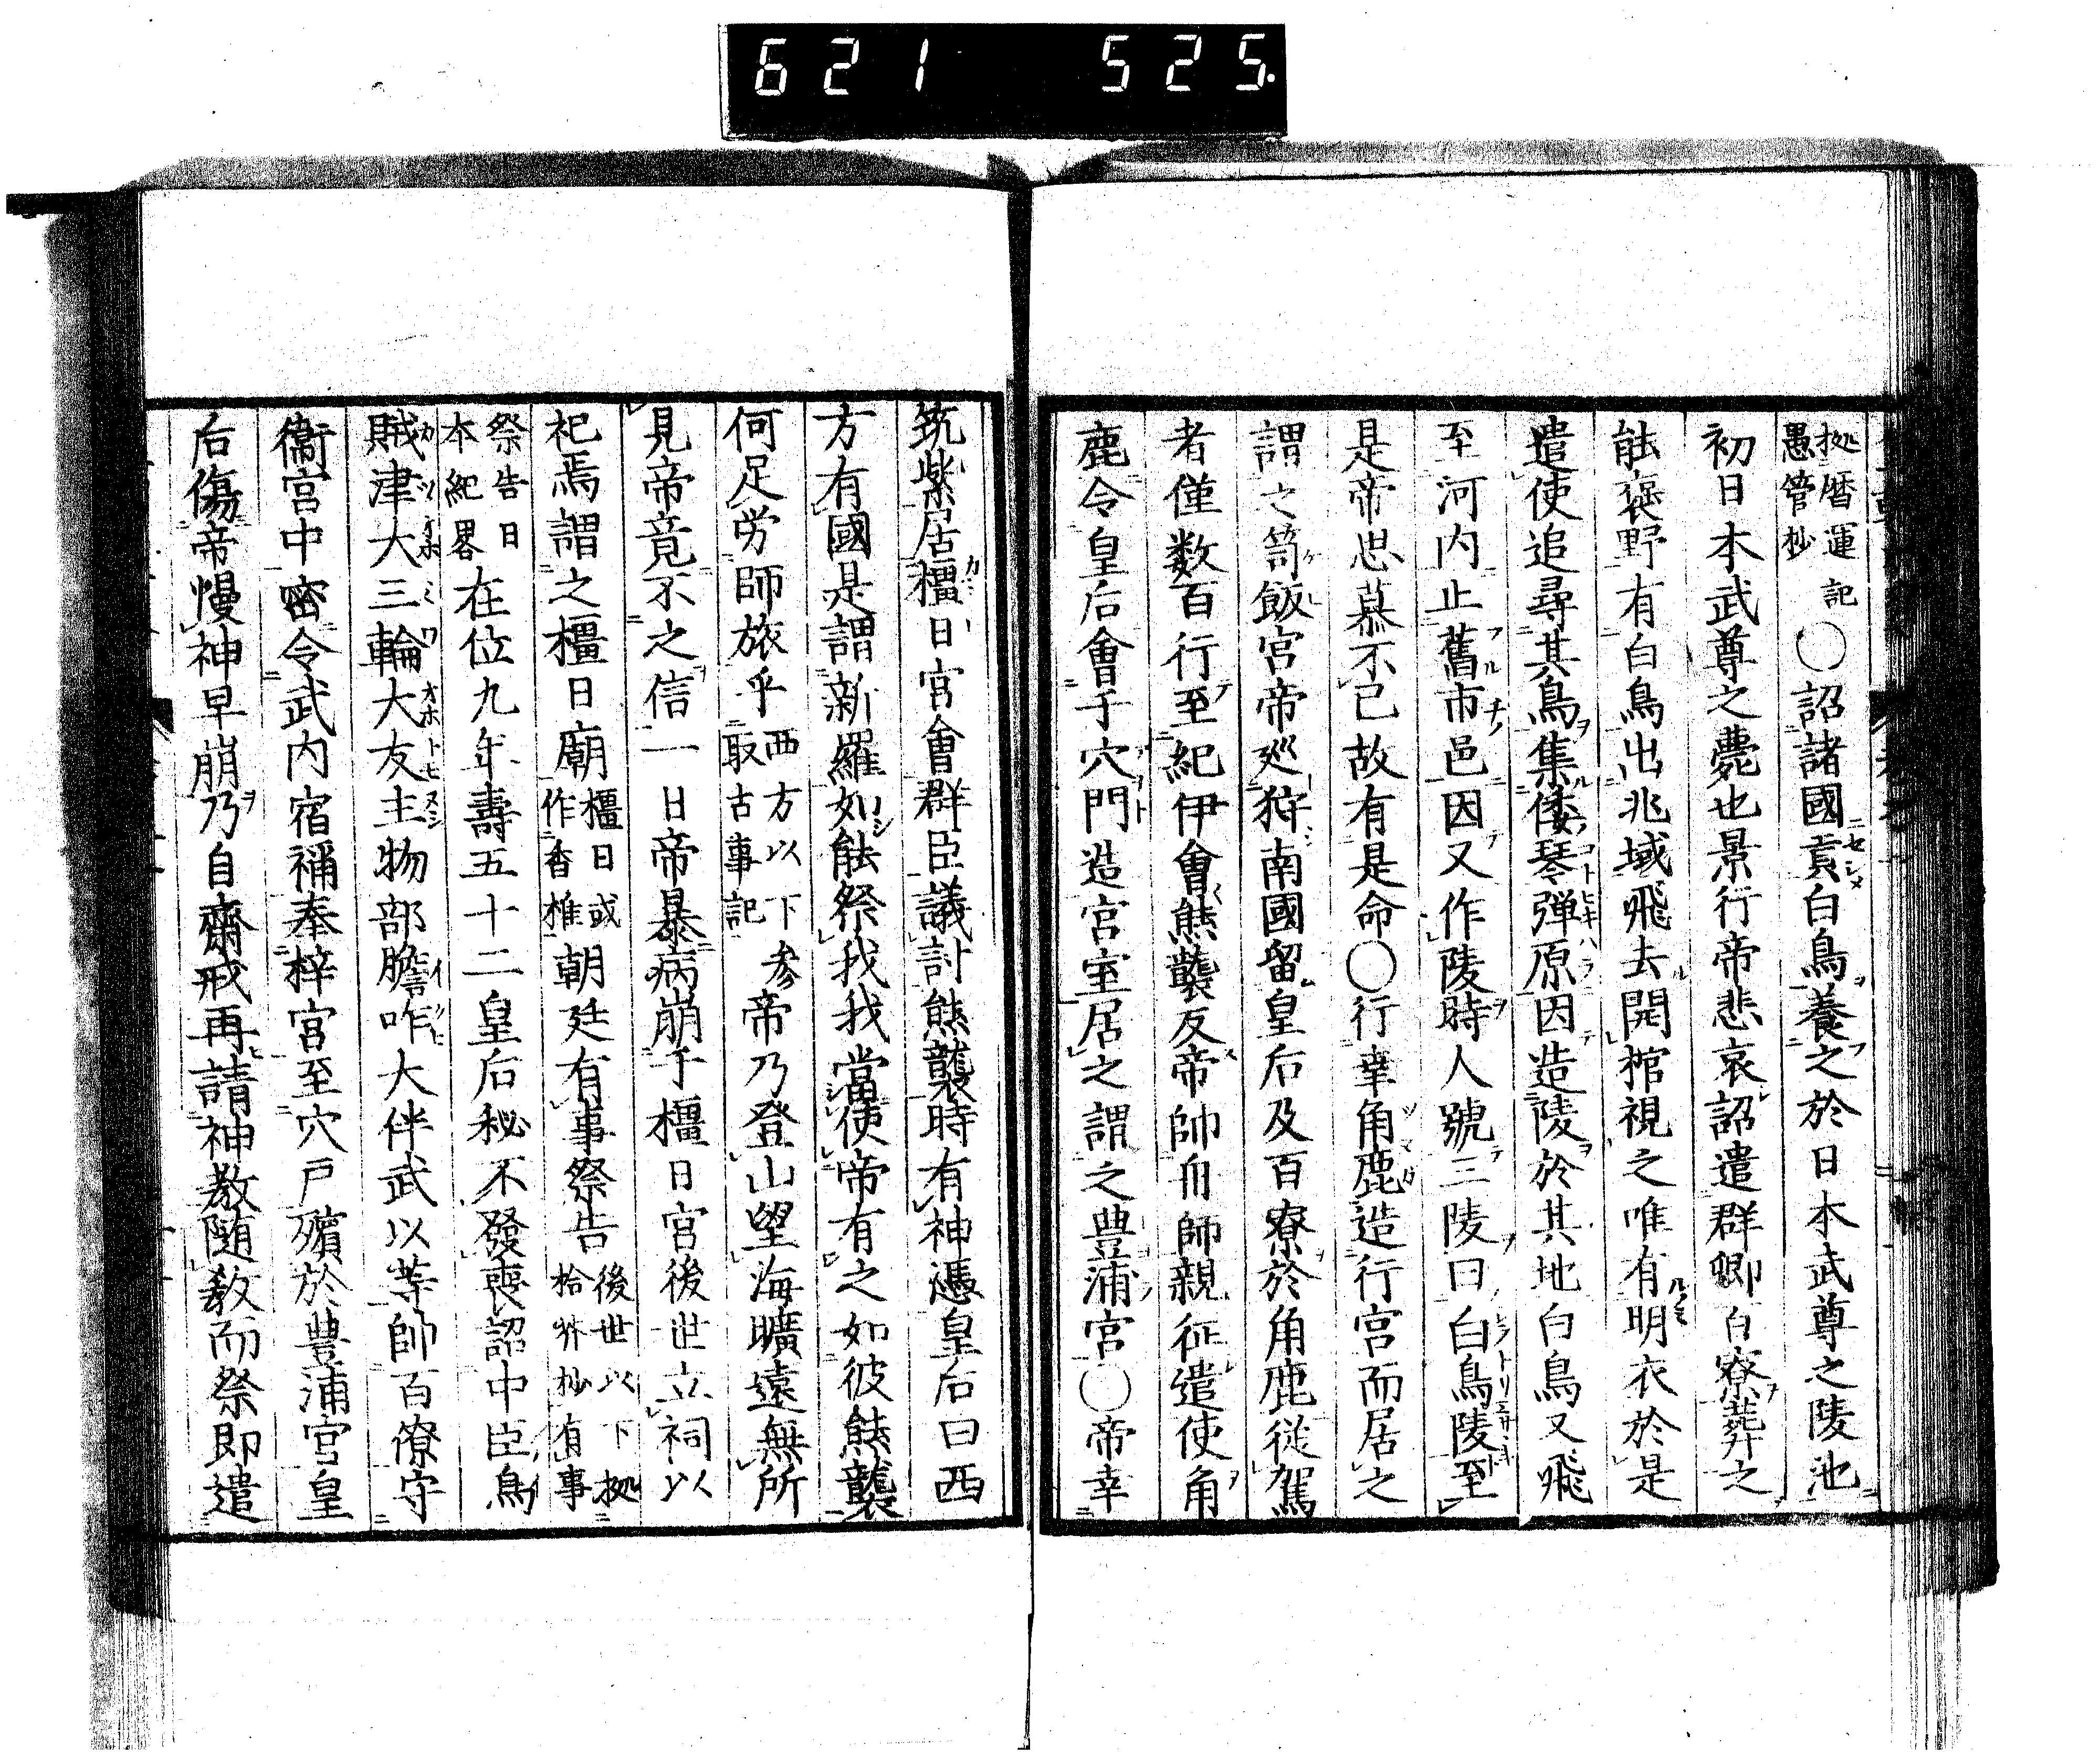 621 525.
拠暦運記
愚管抄
○詔諸國貢白鳥養之於日本武尊之陵池
初日本武尊之薨也景行帝悲哀詔遣群卿百寮葬之
能褒野有白鳥出兆域飛去開棺視之唯有明衣於是
遣使追尋其鳥集倭琴弾原因造陵於其地白鳥又飛
至河内止舊市邑因又作陵時人號三陵曰白鳥陵至
是帝思慕不已故有是命○行幸角鹿造行宮而居之
謂之笥飯宮帝廵狩南國留皇后及百寮於角鹿従駕
者僅数百行至紀伊會熊襲反帝帥舟師親征遣使角
鹿令皇后會于穴門造宮室居之謂之豊浦宮○帝幸
筑紫居橿日宮會群臣議討熊襲時有神憑皇后曰西
方有國是謂新羅如能祭我我當使帝有之如彼熊襲
何足労師旅乎西方以下参
取古事記
帝乃登山望海曠遠無所
見帝竟不之信一日帝暴病崩于橿日宮後世立祠以
祀焉謂之橿日廟橿日或
作香椎
朝廷有事祭告後世以下拠
拾芥抄
有事
祭告日
本紀畧
在位九年壽五十二皇后秘不發喪詔中臣烏
賊津大三輪大友主物部膽咋大伴武以等帥百僚守
衞宮中密令武内宿祢奉梓宮至穴戸殯於豊浦宮皇
后傷帝慢神早崩乃自齋戒再請神教随教而祭即遣